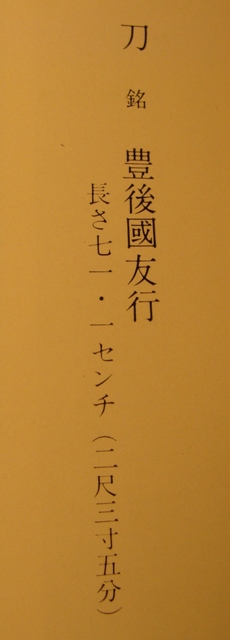 刀 銘 豊後國友行
長さ七一・一センチ（二尺三寸五分）